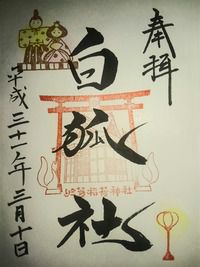 奉拝
白狐社
稲荷神社
平成三十一年三月十日